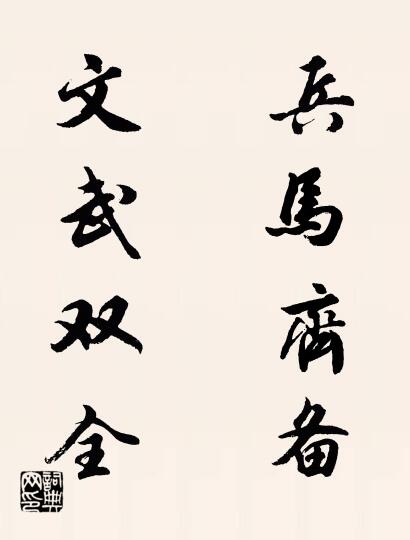 兵馬齊备
文武双全
詞典网印